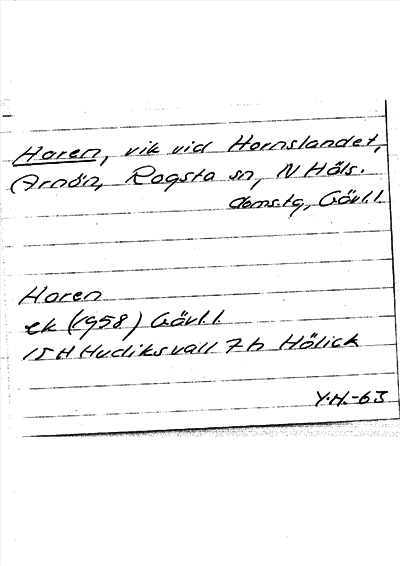 Haren, vik vid Hornslandet,
(Arnön, Rogsta sn, N Häls.
domstg, Gävl.l.
Haren
ek (1958) Gävl.l.
15H Hudiksvall 7h Hölick
Y.H.-63